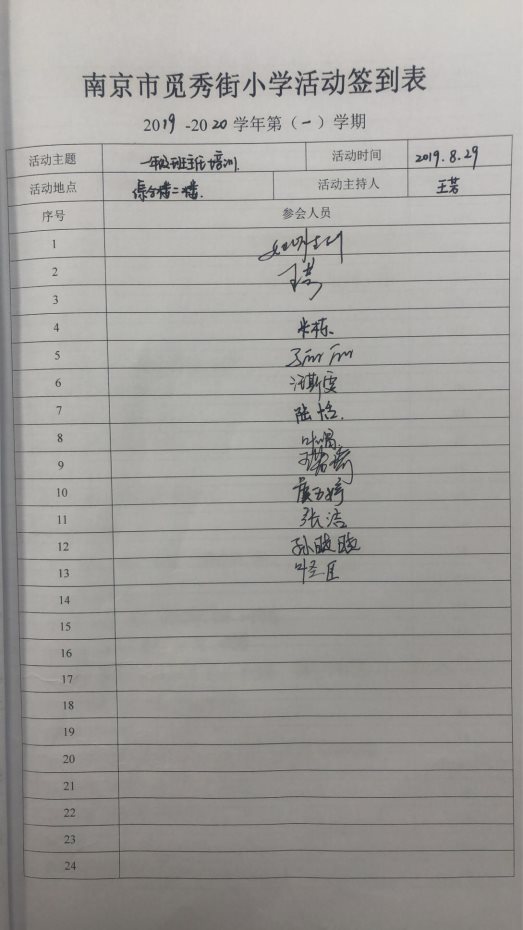 南京市觅秀街小学活动签到表
2019-2020学年第（一）学期
活动主题 一年级班主任培训 活动时间 2019.8.29
活动地点 综合楼二楼. 活动主持人 王芳
序号 参会人员
1
2
3
4 朱栋.
5
6 汪斯雯
7 陆恬.
8
9
10 虞玉婷
11 张洁
12 孙晓晓
13
14
15
16
17
18
19
20
21
22
23
24